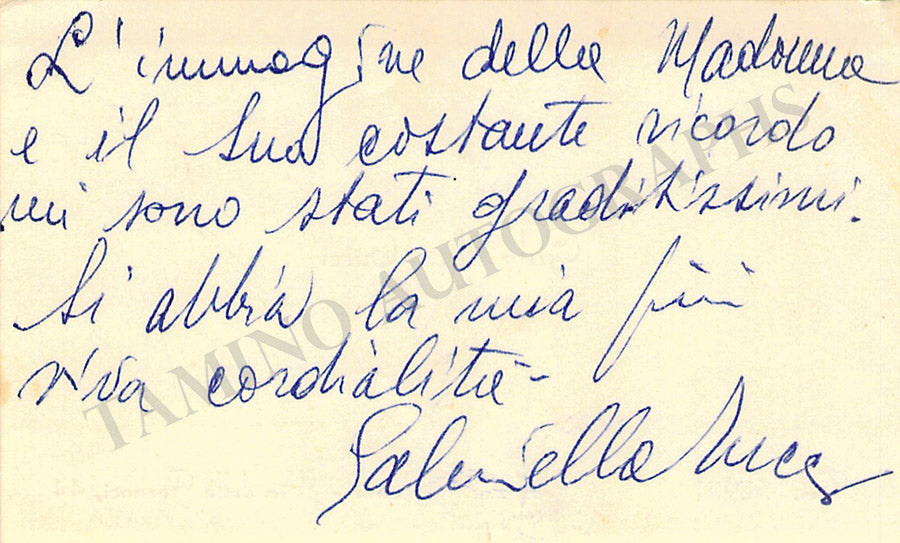 L'immagine della Madonna
e il Suo costante ricordo
mi sono stati graditissimi.
Si abbia la mia più
viva cordialità -
Gabriella Tucci
TAMINO AUTOGRAPHS